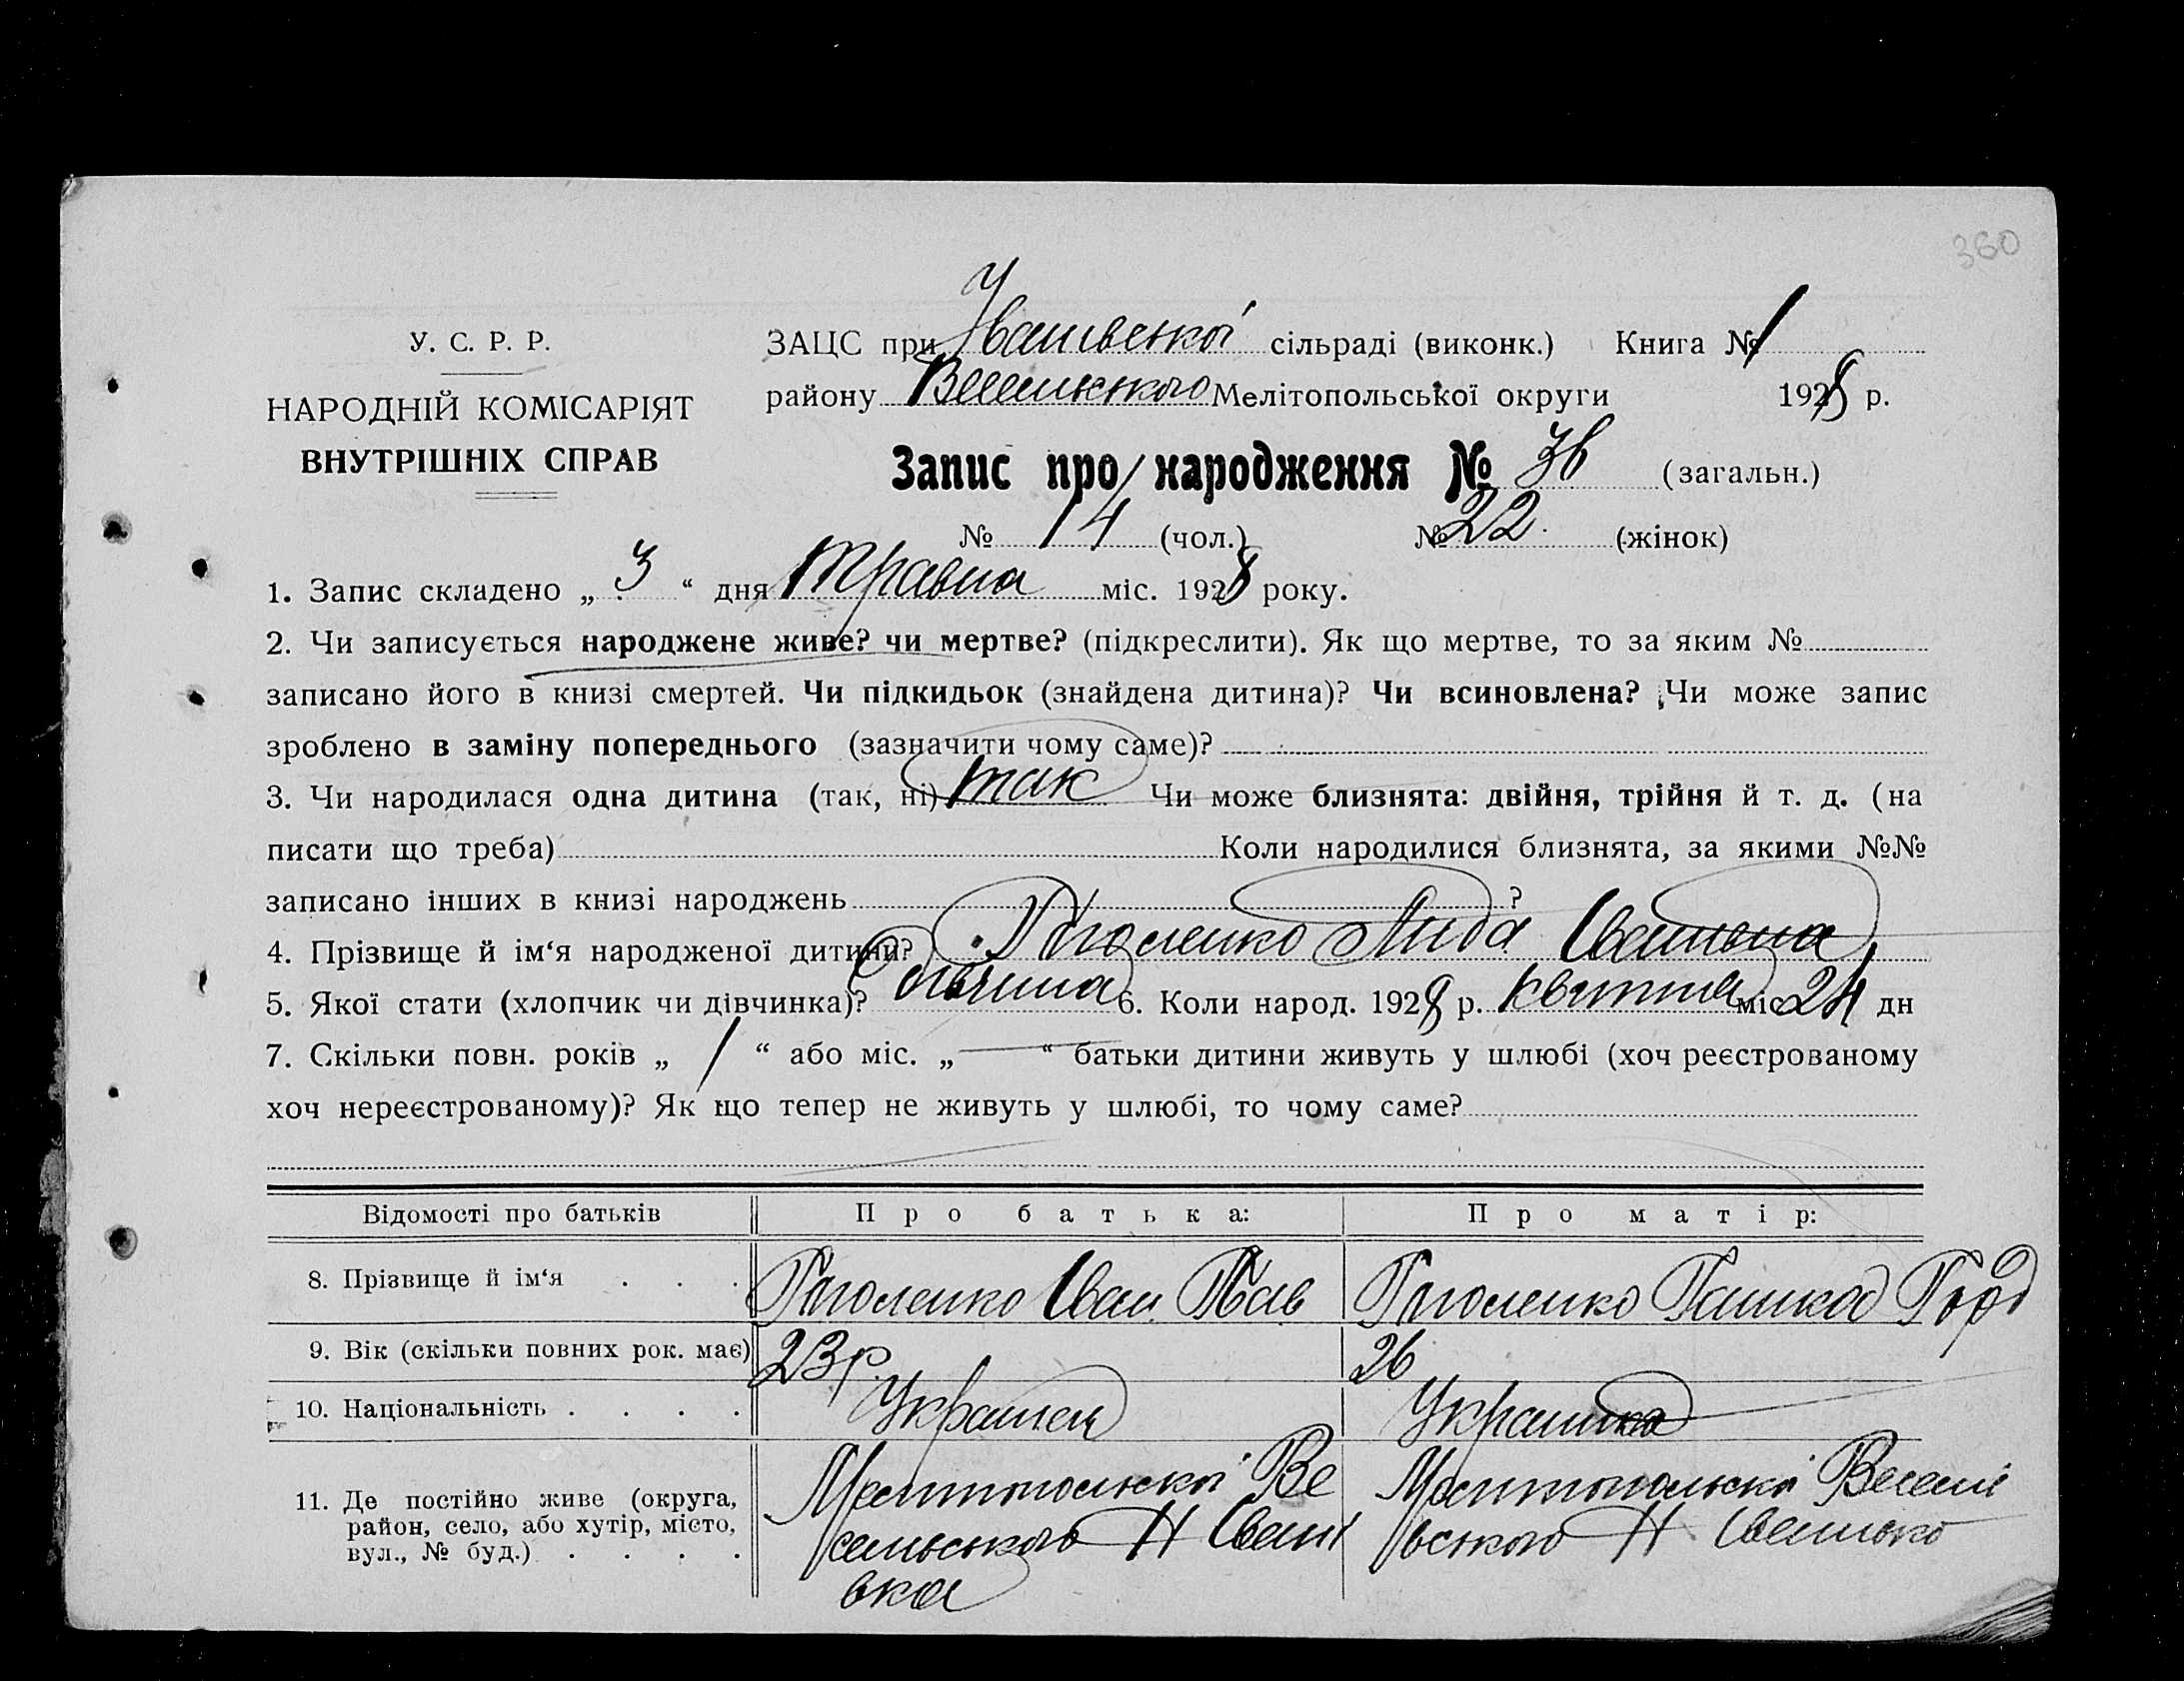 360
У. С. Р. Р.
НАРОДНІЙ КОМІСАРІЯТ
ВНУТРІШНІХ СПРАВ
ЗАЦС при Іванівській сільраді (виконк.) Книга № 1
району Веселівського Мелітопольської округи 1928 р.
Запис про народження № 36 (загальн.)
№ 14 (чол.) № 22 (жінок)
1. Запис складено „ 3 “ дня Травня міс. 1928 року.
2. Чи записується народжене живе? чи мертве? (підкреслити). Як що мертве, то за яким №
записано його в книзі смертей. Чи підкидьок (знайдена дитина)? Чи всиновлена? Чи може запис
зроблено в заміну попереднього (зазначити чому саме)?
3. Чи народилася одна дитина (так, ні) так Чи може близнята: двійня, трійня й т. д. (на
писати що треба) Коли народилися близнята, за якими №№
записано інших в книзі народжень ?
4. Прізвище й ім‘я народженої дитини? Гоголенко Лида Іванівна
5. Якої стати (хлопчик чи дівчинка)? дівчина 6. Коли народ. 1928 р. квітня міс 24 дн
7. Скільки повн. років „ 1 “ або міс. „ — “ батьки дитини живуть у шлюбі (хоч реєстрованому
хоч нереєстрованому)? Як що тепер не живуть у шлюбі, то чому саме?
Відомості про батьків Про батька: Про матір:
8. Прізвище й ім‘я . . . Гоголенко Іван Пав Гоголенко Горд
9. Вік (скільки повних рок. має) 23 р. 26
10. Національність . . . . Українец Українка
11. Де постійно живе (округа,
район, село, або хутір, місто,
вул., № буд.) . . . .
Мелітопольскої Ве
сельського Н Івані
вка
Мелітопольскої Веселі
вського Н